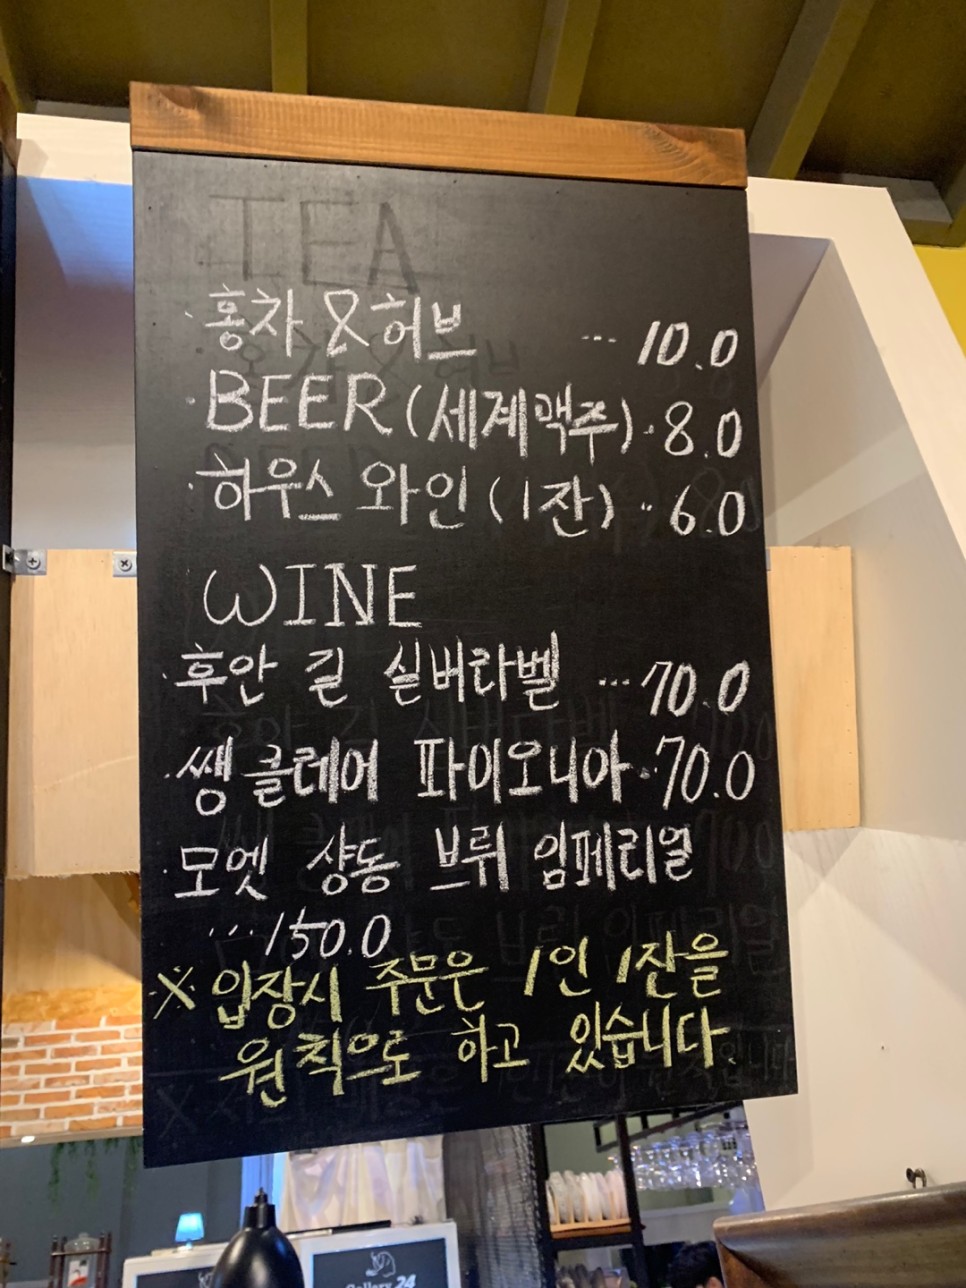 TEA
· 홍차 & 허브 ... 10.0
· BEER (세계맥주) · 8.0
· 하우스 와인 (1잔) .. 6.0
WINE
· 후안 길 실버라벨 ... 70.0
· 쌩 클레어 파이오니아 .. 70.0
· 모엣 샹동 브뤼 임페리얼
... 150.0
※ 입장시 주문은 1인 1잔을
원칙으로 하고 있습니다.
Gallery 24